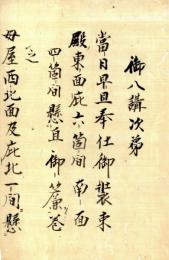 御八講次第
當日早旦奉仕御裝束
殿東面庇六箇間南面
四箇間懸亘御簾卷
之
母屋西北面及庇北一間懸